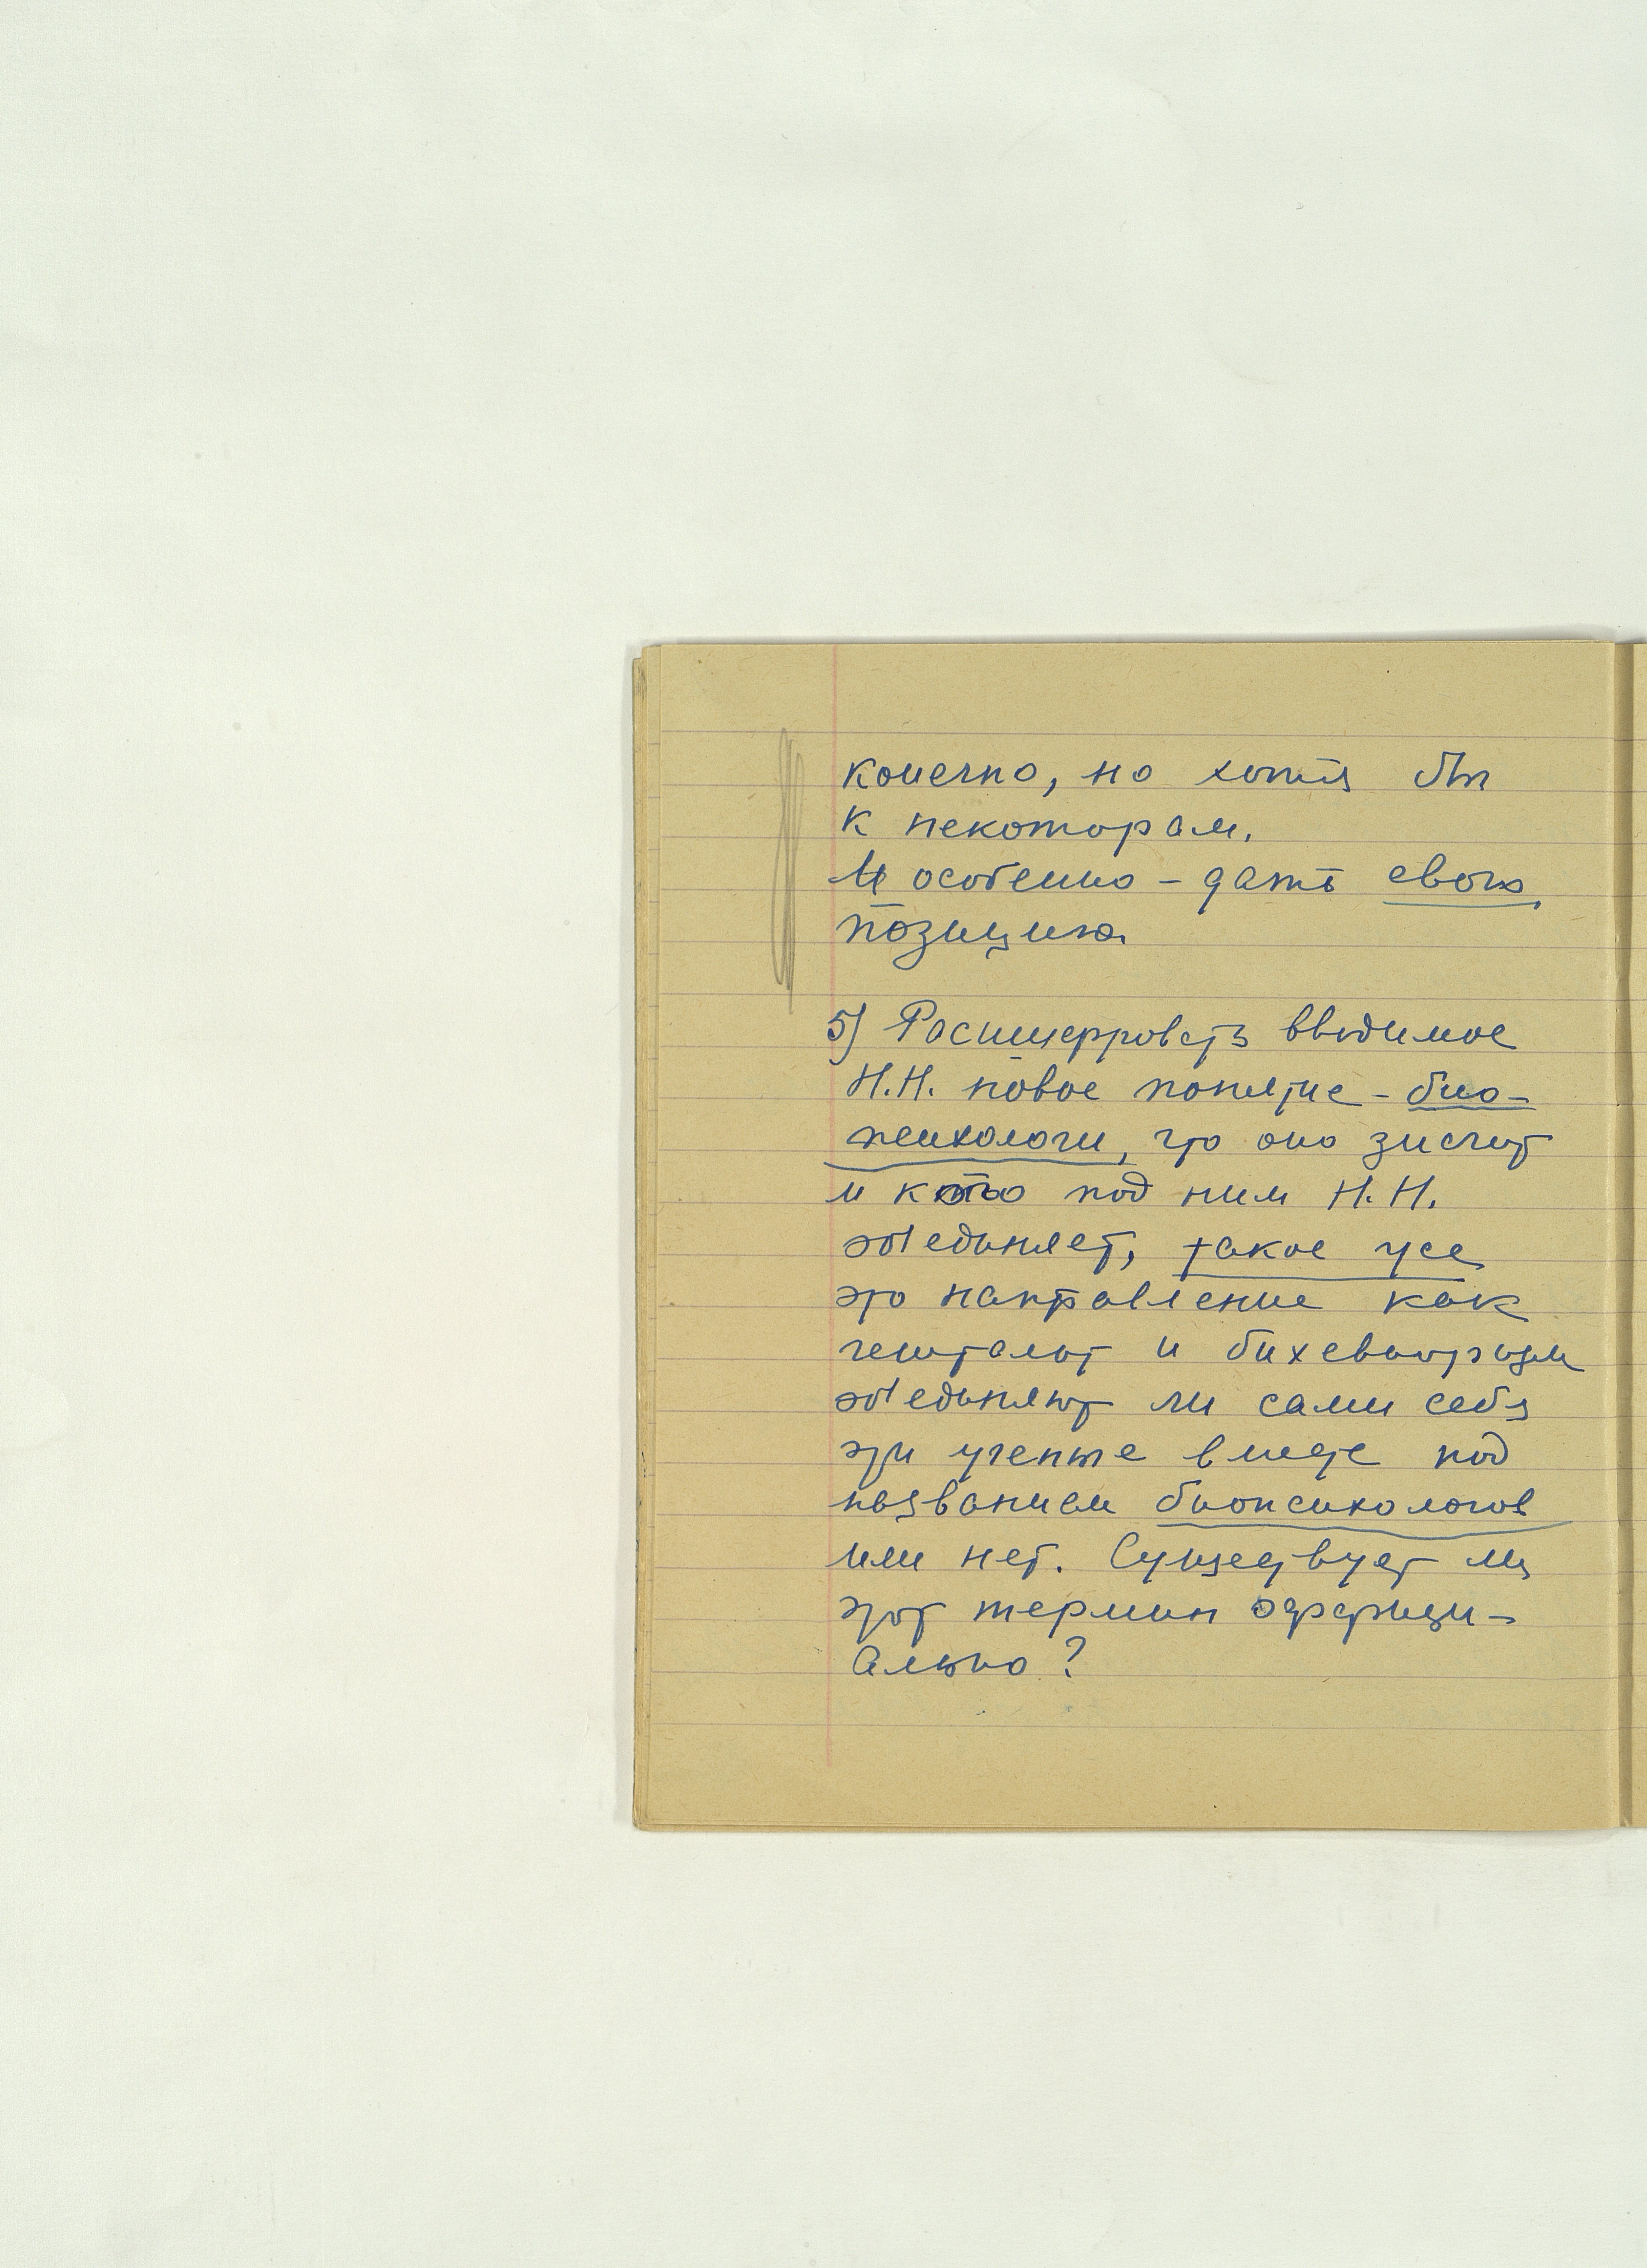 конечно, но хотя бы
к некоторам.
И особенно – дать свою
позицию.
5) Расшифровать вводимое
Н.Н. новое понятие – био-
психологи, что оно значит
и кого под ним Н.Н.
объединяет, такое же
это направление как
гештальт и бихевиоризм
объединяют ли сами себя
эти ученые вместе под
названием биопсихологов
или нет. Существует ли
этот термин официи-
ально?